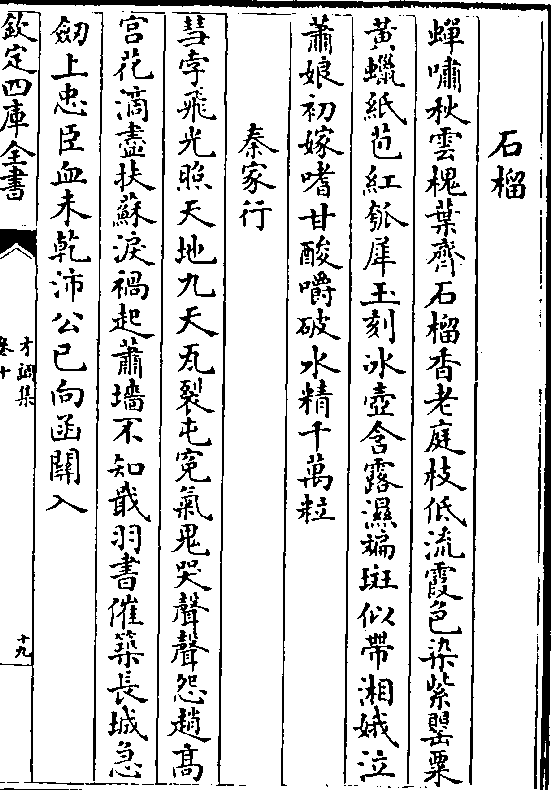 石榴
蟬嘯秋雲槐葉齊石榴香老庭枝低流霞色染紫罌粟
黃蠟紙苞紅瓠犀玉刻冰壺含露濕斒斑似帶湘娥泣
蕭娘初嫁嗜甘酸嚼破水精千萬粒
秦家行
彗孛飛光照天地九天瓦裂屯寃氣鬼哭聲聲怨趙髙
宫花滴盡扶蘇淚禍起蕭墻不知戢羽書催築長城急
劒上忠臣血未乾沛公已向函關入
欽定四庫全書
才調集
卷十
十九